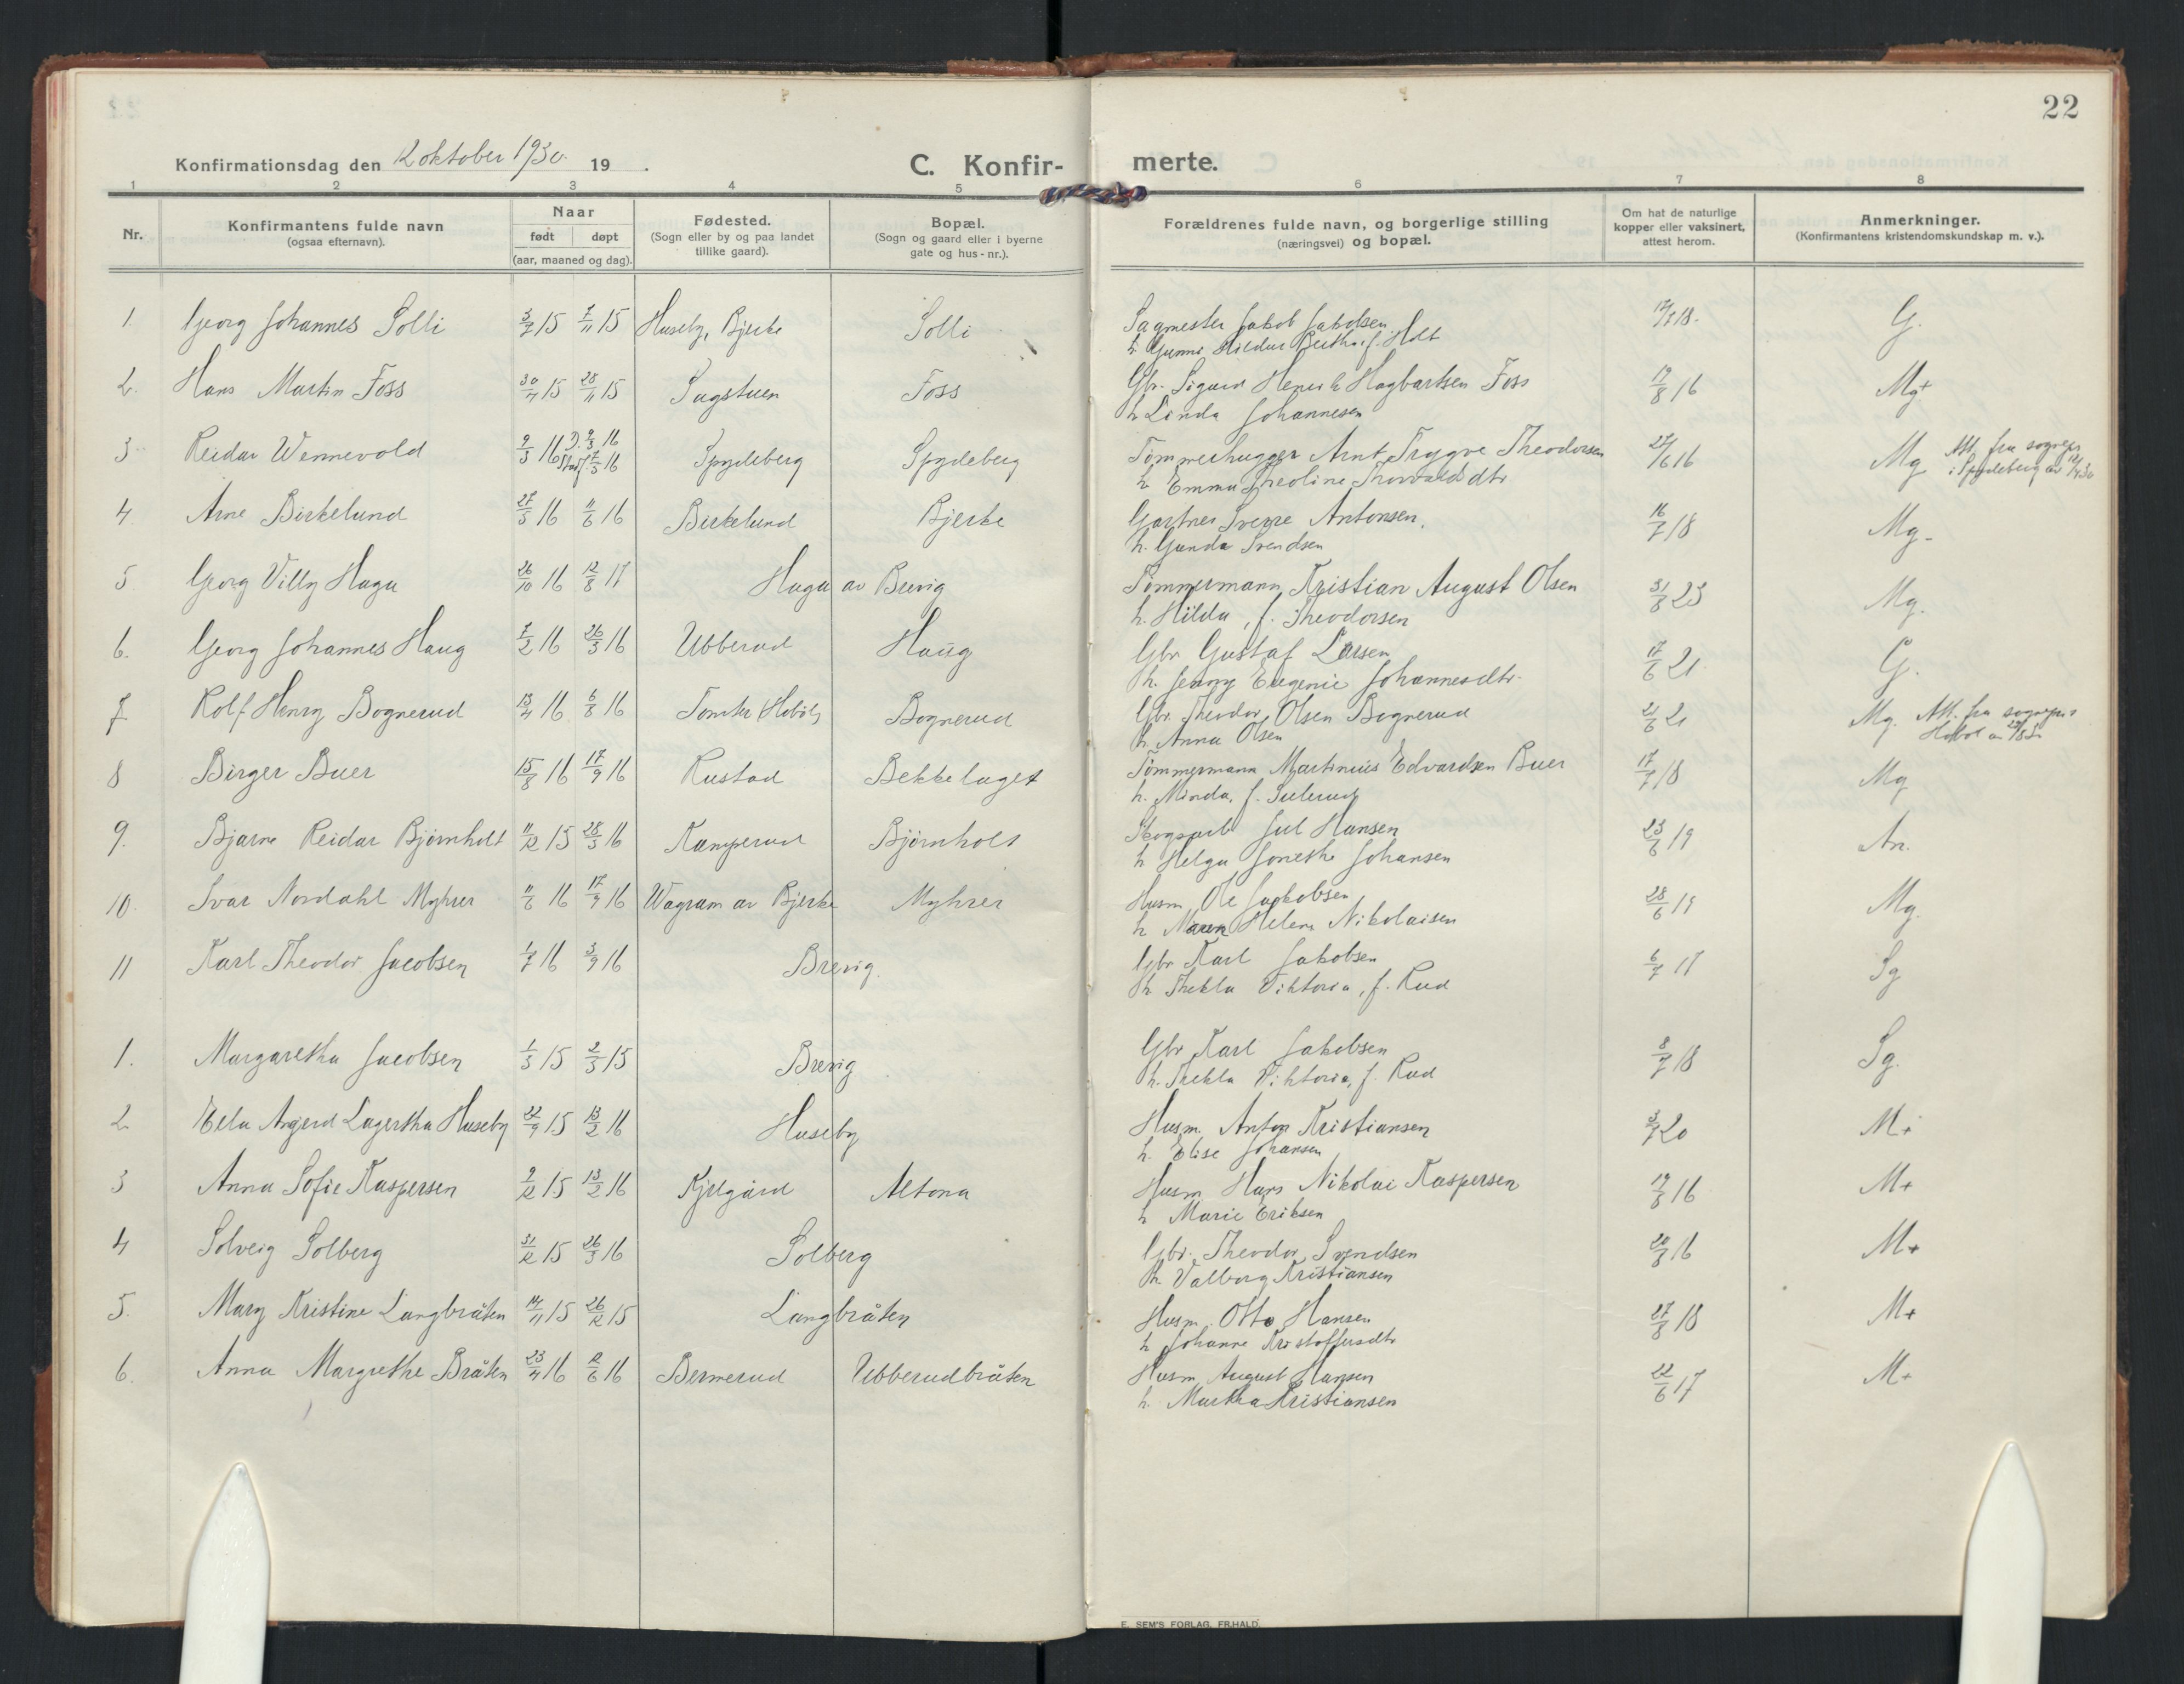 22
Konfirmationsdag den 12 oktober 1930. 19 .
C. Konfirmerte.
1 2 3 4 5 6 7 8
Nr.
Konfirmantens fulde navn
(ogsaa efternavn).
Naar
født døpt
(aar, maaned og dag).
Fødested.
(Sogn eller by og paa landet
tillike gaard).
Bopæl.
(Sogn og gaard eller i byerne
gate og hus-nr.).
Forældrenes fulde navn, og borgerlige stilling
(næringsvei) og bopæl.
Om hat de naturlige
kopper eller vaksinert,
attest herom.
Anmerkninger.
(Konfirmantens kristendomskundskap m. v.).
1. Georg Johannes Solli 3/7 15 7/11 15 Huseby, Bjerke Solli Sagmester Jakob Jakobsen G.
h. Gunna Hildur Bertha f. Holt
2. Hans Martin Foss 30/4 15 28/11 15 Sagstuen Foss Gbr. Sigurd Henrik Hagbartsen Foss 19/8 16 Mg+
h. Linda Johannesen
3 Reidar Wennevold 9/3 16 Spydeberg Spydeberg Tømmerhugger Arnt Trygve Theodorsen 27/6 16 Mg Att. fra sogнepr.
h. Emma Theoline Thorvaldsdtr i Spydeberg av
4. Arne Birkelund 27/5 16 11/6 16 Birkelund Bjerke Gartner Sverre Antonsen. 16/7 18 Mg-
h. Gunda Svendsen
5 Georg Villy Haga 26/10 16 12/8 17 Haga av Brevig Tømmermann Kristian August Olsen 31/8 23 Mg.
h. Hilda, f. Theodorsen
6. Georg Johannes Haug 7/2 16 26/3 16 Ubberud Haug Gbr. Gustaf Larsen 17/6 21 G.
h. Jenny Eugenie Johannesdtr.
7 Rolf Henry Bognerud 13/4 16 6/8 16 Tomter, Hobøl Bognerud Gbr. Theodor Olsen Bognerud 21/6 21 Mg. Att. fra sognepr.
h. Anna Olsen Hobøl av
8 Birger Buer 15/8 16 17/9 16 Rustad Bekkelaget Tømmermann Martinius Edvardsen Buer 17/7 18 Mg
h. Minda, f. Sulerud
9. Bjarne Reidar Bjørnholt 11/12 15 28/5 16 Kamperud Bjørnholt Skogsarb Jul Hansen 23/6 19 An.
h Helga Jonethe Johansen
10. Ivar Nordahl Myhrer 11/6 16 17/9 16 Wagram av Bjerke Myhrer Husm. Ole Jackobsen 28/6 19 Mg.
h Maren Helene Nikolaisen
11 Karl Theodor Jacobsen 1/7 16 3/9 16 Brevig. Gbr Karl Jakobsen 6/7 17 Sg
h. Thekla Viktoria, f. Rud
1. Margaretha Jacobsen 1/3 15 2/5 15 Brevig Gbr Karl Jakobsen 8/7 18 Sg.
h. Thekla Viktoria, f. Rud
2 Ella Angerd Lagertha Huseby 22/9 15 13/2 16 Huseby Husm. Anton Kristiansen 3/7 20 M+
h. Elise Johansen
3 Anna Sofie Kaspersen 9/12 15 13/2 16 Kjelgård Altona Husm Hans Nikolai Kaspersen 19/8 16 M+
h Marie Eriksen
4 Solveig Solberg 31/12 15 26/3 16 Solberg Gbr. Theodor Svendsen 20/8 16 M+
h Valborg Kristiansen
5. Mary Kristine Langbråten 14/11 15 26/12 15 Langbråten Husm. Otto Hansen 27/8 18 M+
h Johanne Kristoffersdtr
6. Anna Margrethe Bråten 23/4 16 12/6 16 Bermerud Ubberudbråten Husm August Hansen 22/6 17 M+
h. Martha Kristiansen
E. SEM'S FORLAG, FR.HALD.